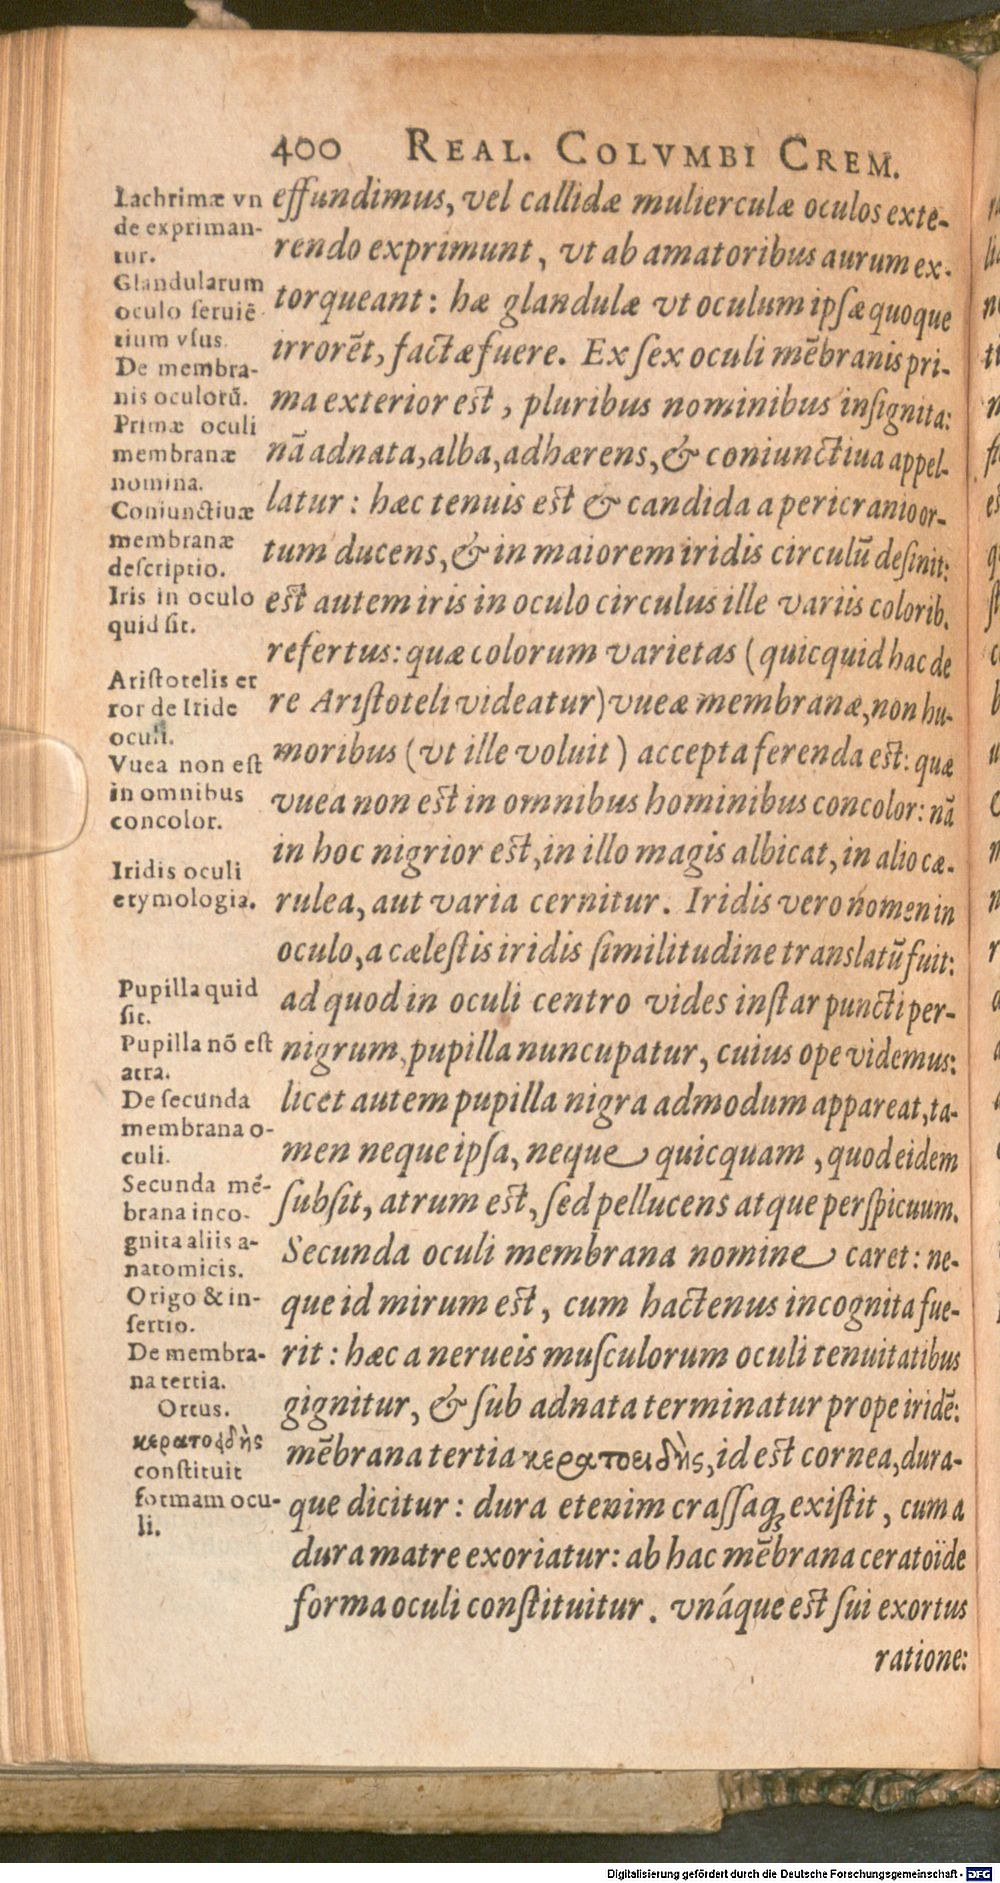 400 REAL. COLVMBI CREM.
Lachrimæ vn
de expriman-
tur.
Glandularum
oculo seruiẽ
tium vsus.
De membra-
nis oculorũ.
Primæ oculi
membranæ
nomina.
Coniunctiuæ
membranæ
descriptio.
Iris in oculo
quid sit.
Aristotelis er
ror de Iride
oculi.
Vuea non est
in omnibus
concolor.
Iridis oculi
etymologia.
Pupilla quid
sit.
Pupilla nõ est
atra.
De secunda
membrana o-
culi.
Secunda mẽ-
brana inco-
gnita aliis a-
natomicis.
Origo & in-
sertio.
De membra-
na tertia.
Ortus.
κερατοειδὴς
constituit
formam ocu-
li.
effundimus, vel callidæ mulierculæ oculos exte-
rendo exprimunt, vt ab amatoribus aurum ex-
torqueant: hæ glandulæ vt oculum ipsæ quoque
irrorẽt, factæ fuere. Ex sex oculi mẽbranis pri-
ma exterior est, pluribus nominibus insignita:
nã adnata, alba, adhærens, & coniunctiua appel-
latur: hæc tenuis est & candida a pericranio or-
tum ducens, & in maiorem iridis circulũ desinit:
est autem iris in oculo circulus ille variis colorib.
refertus: quæ colorum varietas (quicquid hac de
re Aristoteli videatur) vueæ membranæ, non hu-
moribus (vt ille voluit) accepta ferenda est: quæ
vuea non est in omnibus hominibus concolor: nã
in hoc nigrior est, in illo magis albicat, in alio cæ-
rulea, aut varia cernitur. Iridis vero nomen in
oculo, a cælestis iridis similitudine translatũ fuit:
ad quod in oculi centro vides instar puncti per-
nigrum, pupilla nuncupatur, cuius ope videmus:
licet autem pupilla nigra admodum appareat, ta-
men neque ipsa, neque quicquam, quod eidem
subsit, atrum est, sed pellucens atque perspicuum.
Secunda oculi membrana nomine caret: ne-
que id mirum est, cum hactenus incognita fue-
rit: hæc a nerueis musculorum oculi tenuitatibus
gignitur, & sub adnata terminatur prope iridẽ:
mẽbrana tertia κερατοειδὴς, id est cornea, dura-
que dicitur: dura etenim crassaq; existit, cum a
dura matre exoriatur: ab hac mẽbrana ceratoïde
forma oculi constituitur. vnáque est sui exortus
ratione:
Digitalisierung gefördert durch die Deutsche Forschungsgemeinschaft - DFG